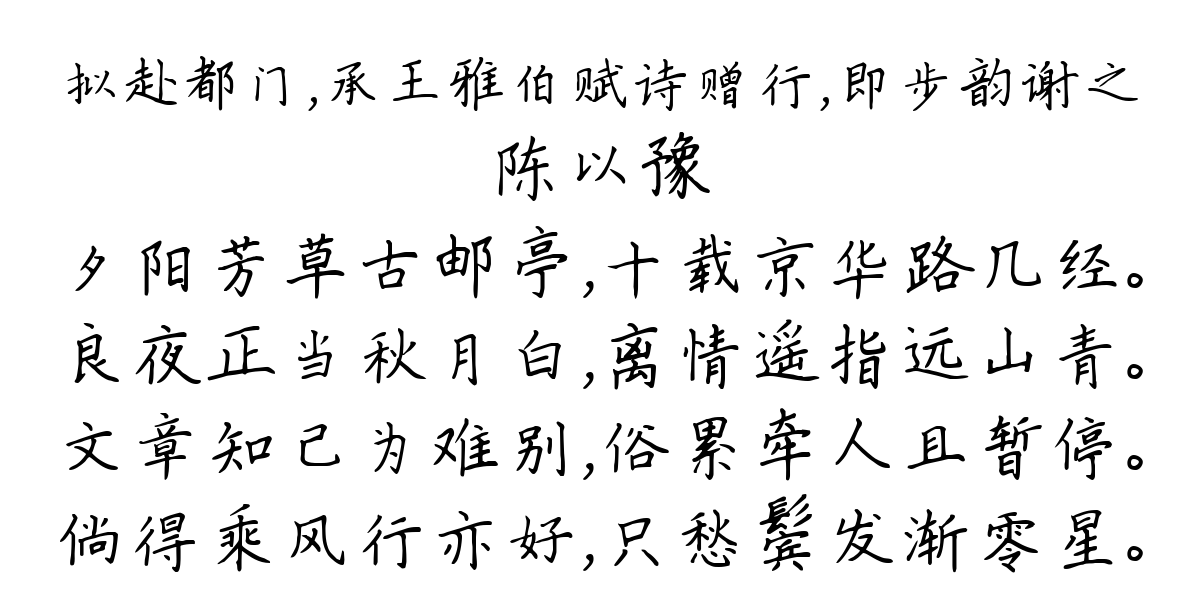 拟赴都门,承王雅伯赋诗赠行,即步韵谢之
陈以豫
夕阳芳草古邮亭,十载京华路几经。
良夜正当秋月白,离情遥指远山青。
文章知己为难别,俗累牵人且暂停。
倘得乘风行亦好,只愁鬓发渐零星。